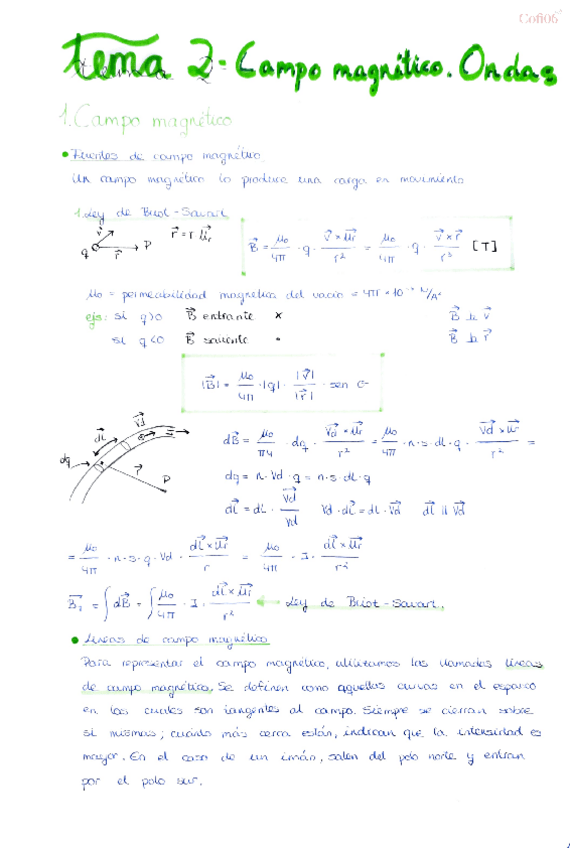 Cofi06
Tema 2. Campo magnético. Ondas
1. Campo magnético
• Fuentes de campo magnético.
Un campo magnético lo produce una carga en movimiento
1. Ley de Biot-Savart
q v⃗ r⃗ P r⃗ = r u⃗r
B⃗ = μ₀/4π · q · v⃗×u⃗r/r² = μ₀/4π · q · v⃗×r⃗/r³ [T]
μ₀ = permeabilidad magnética del vacío = 4π × 10
ejs: si q>0 B⃗ entrante × B⃗ ⊥ v⃗
si q<0 B⃗ saliente • B⃗ ⊥ r⃗
|B⃗| = μ₀/4π · |q| · |v⃗|/|r⃗| · sen Θ
dq dl⃗ Vd⃗ r⃗ P
dB⃗ = μ₀/π4 · dq · Vd⃗×u⃗r/r² = μ₀/4π · n·s·dl·q · Vd⃗×u⃗r/r² =
dq = n · Vd · q = n·s·dl·q
dl⃗ = dl · Vd⃗/Vd Vd · dl⃗ = dl · Vd⃗ dl⃗ || Vd⃗
= μ₀/4π · n·s·q·Vd · dl⃗×u⃗r/r = μ₀/4π · I · dl⃗×u⃗r/r²
= ∫dB⃗ = ∫ μ₀/4π · I · dl⃗×u⃗r/r² ← Ley de Biot-Savart.
• Líneas de campo magnético
Para representar el campo magnético, utilizamos las llamadas líneas
de campo magnético. Se definen como aquellas curvas en el espacio
en las cuales son tangentes al campo. Siempre se cierran sobre
si mismas; cuánto más cerca están, indican que la intensidad es
mayor. En el caso de un imán, salen del polo norte y entran
por el polo sur.